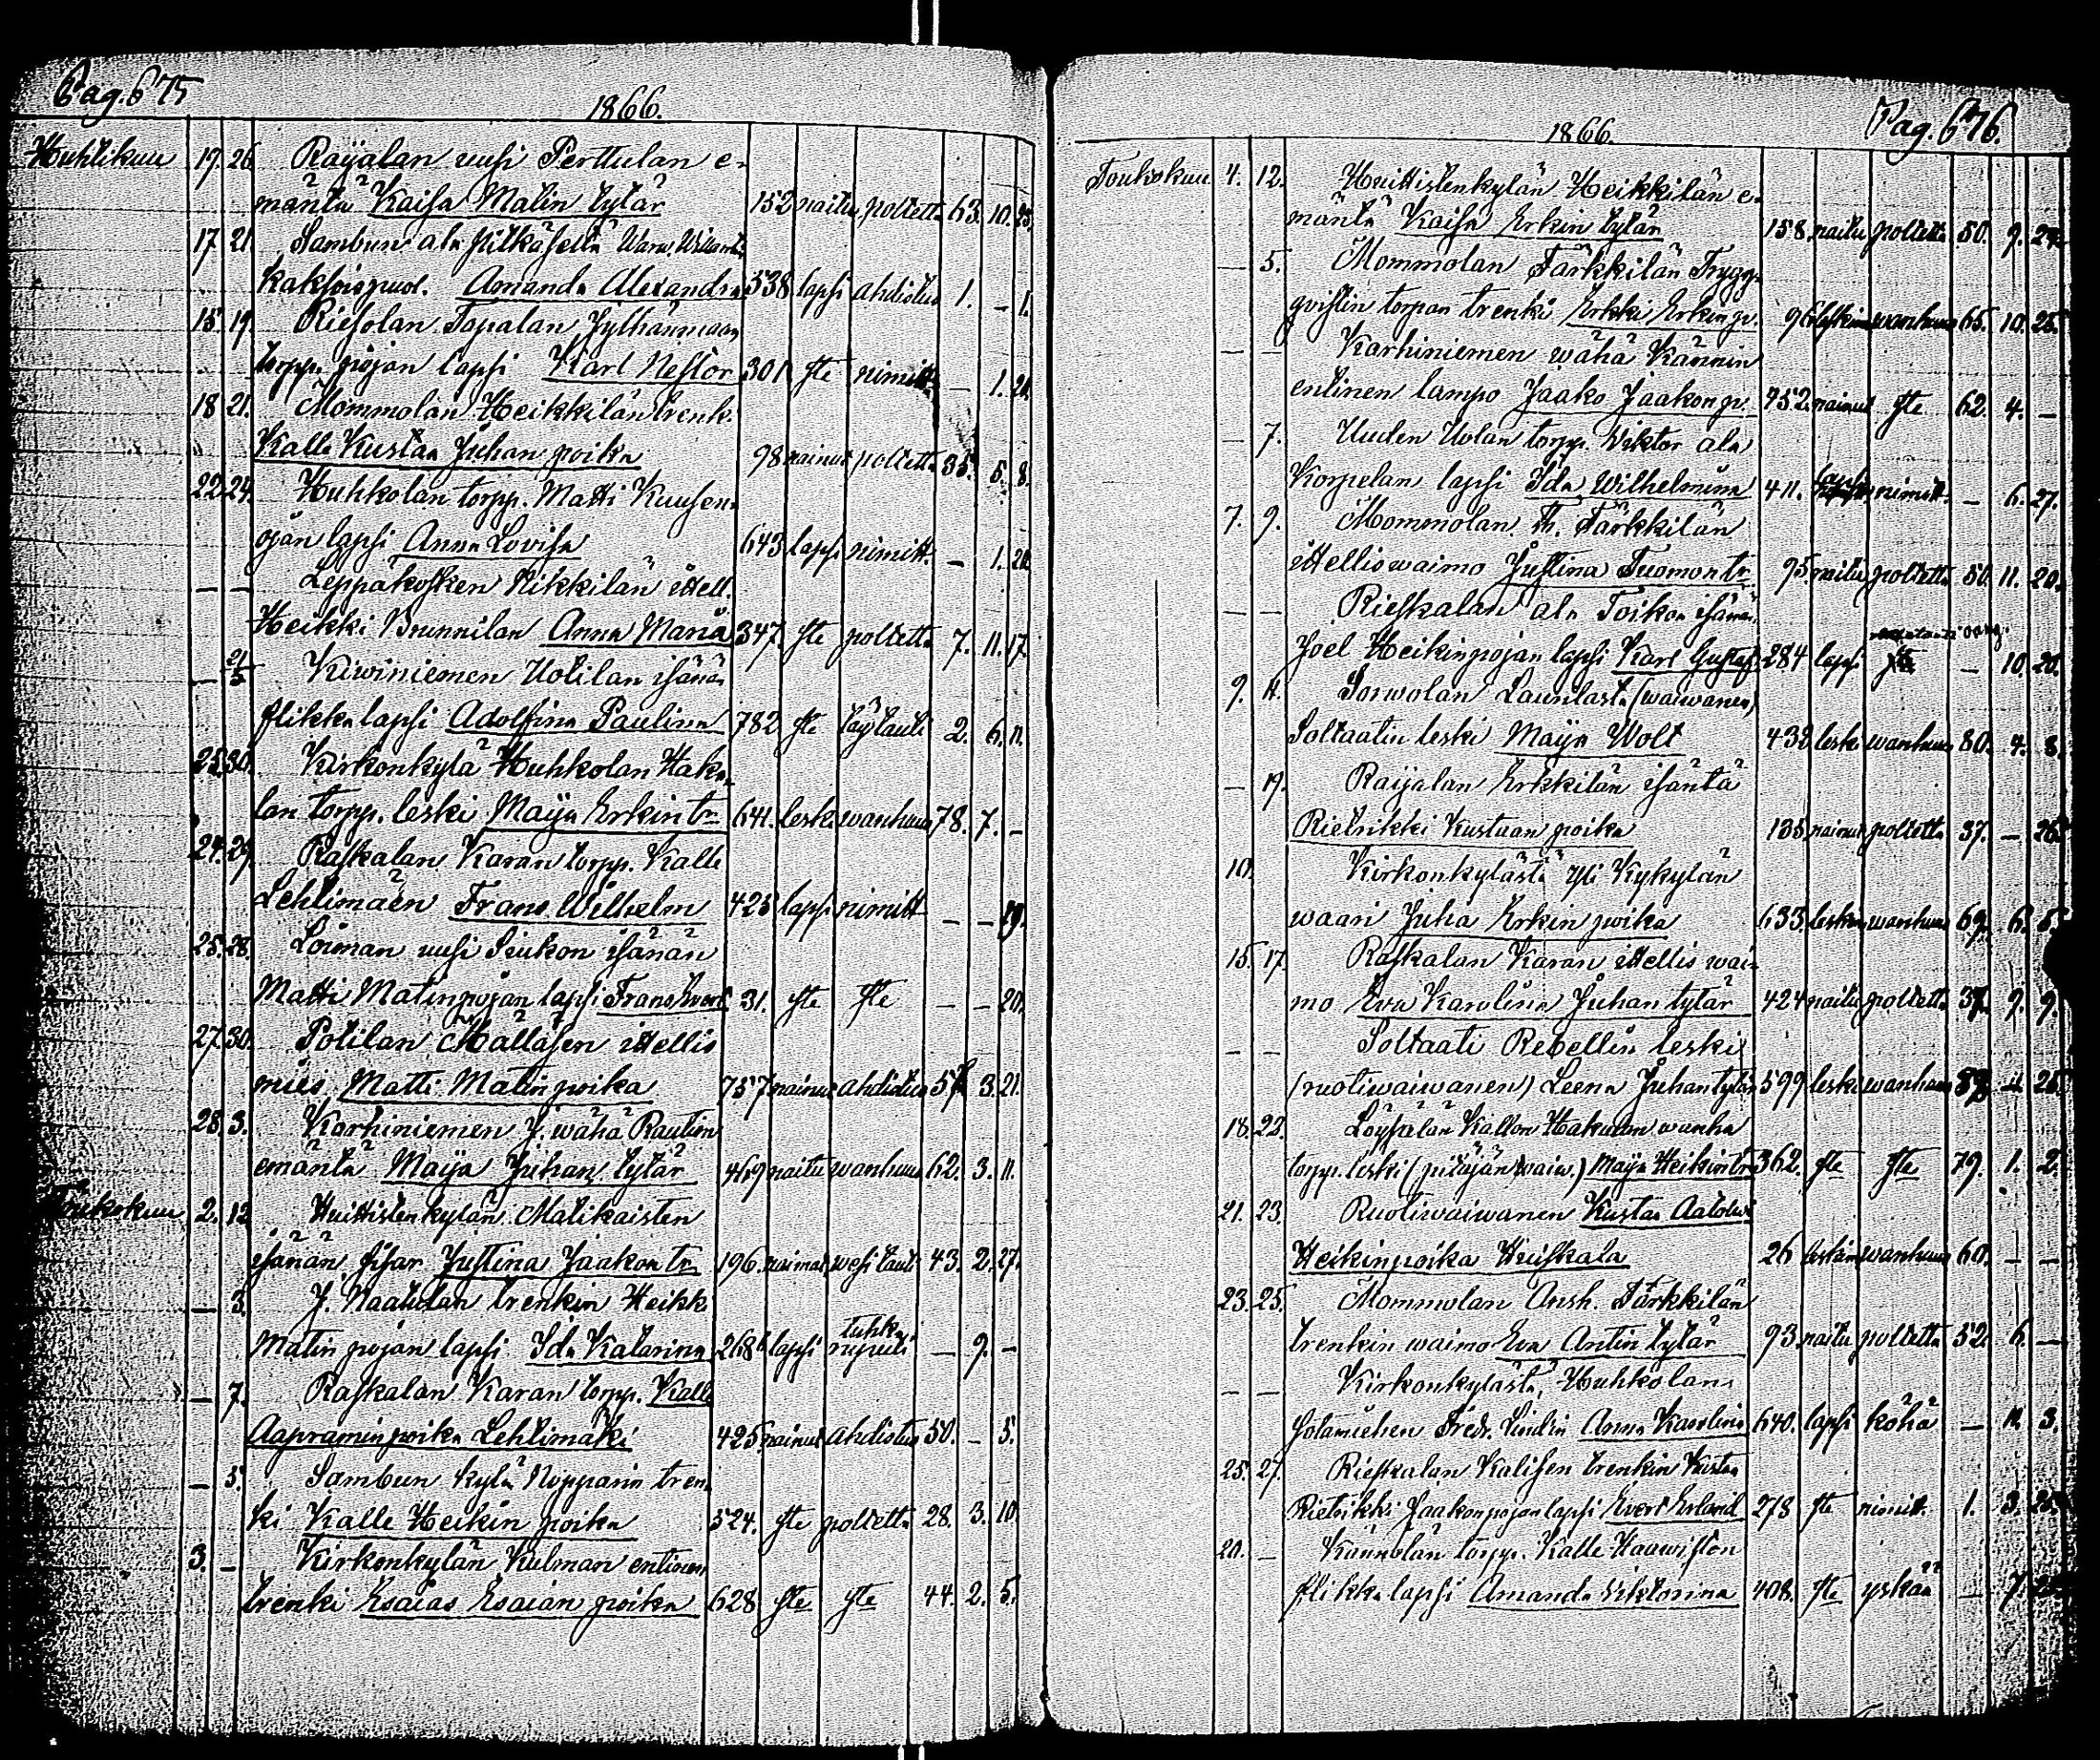 Pag. 675
1866.
Huhtikuu 17. 26. Raijalan uusi Perttulan e-
mäntä Kaisa Matin tytär 152 naitu poltetta 63. 10. 25.
17. 21. Sambun ala Pitkäsellä
kaksoispuol. Amanda Alexandra 538 lapsi ahdistus 1. – 1.
15. 19. Riesolan Topalan Jylhänmaan
torpp. pojan lapsi Karl Nestor 301 ste nimitt. – 1.
18. 21. Mommolan Heikkilän trenk.
Kalle Kustaa Juhan poika 98 nainut poltetta 35. 5. 8.
22. 24. Huhkolan torpp. Matti Kuusen-
ojan lapsi Anna Lovisa 643 lapsi nimitt. – 1.
– – Leppäkosken Nikkilän ittell.
Heikki Brunnilan Anna Maria 347. ste poltetta 7. 11. 17.
– Kiwiniemen Uotilan isänä
flikka lapsi Adolfina Paulina 782 ste täytauti 2. 6. 11.
25. 30. Kirkonkylä Huhkolan Haka-
lan torpp. leski Maija Erkin tr. 641. leski wanhuus 78. 7. –
24. 29. Raskalan Karan torpp. Kalle
Lehtimäen Frans Wilhelm 425 lapsi nimitt – – 19.
25. 28. Loiman uusi Seukon isänän
Matti Matinpojan lapsi Frans Evert 31. ste ste – – 20.
27. 30. Potilan Mälläsen ittellis
mies Matti Matin poika 757 nainut ahdistus 57 3. 21.
28. 3. Karhiniemen J. wähä Rautun
emäntä Maija Juhan tytär 469 naitu wanhuus 62. 3. 11.
Toukokuu 2. 13 Huittisten kylän Matikaisten
isänän sisar Justina Jaakon tr. 196. naimat wesi tauti 43. 2. 27.
– 3. J. Naatulan trenkin Heikk.
Matin pojan lapsi Ida Katarina 268 lapsi tuhk. rupuli – 9. –
– 7. Raskalan Karan torpp. Kalle
Aapramin poika Lehtimäki 425. nainut ahdistus 50. – 5.
– 5. Sambun kylä Nopparin tren-
ki Kalle Heikin poika 524. ste poltetta 28. 3. 10.
3. – Kirkonkylän Kulman entinen
trenki Esaias Esaian poika 628 ste ste 44. 2. 5.
1866. Pag. 676.
Toukokuu 4. 12. Huittistenkylän Heikkilän e-
mäntä Kaisa Erkin tytär 158. naitu poltetta 50. 9. 24.
– 5. Mommolan Tärkkilän Trygg-
qvistin torpan trenki Erkki Erkin p. 96 leskim wanhuus 65. 10. 25.
– – Karhiniemen wähä Kännin
entinen lampo Jaako Jaakon p. 752. nainut ste 62. 4. –
– 7. Uuden Uolan torpp. Wiktor ala
Korpelan lapsi Ida Wilhelmina 411. lapsi nimitt. – 6. 27.
7. 9. Mommolan Th. Tärkkilän
ittellis waimo Justina Tuomon tr. 95 naitu poltetta 50. 11. 20.
– – Rieskalan ala Toikon isänän
Joel Heikinpojan lapsi Karl Gustaf 284 lapsi – 10. 20.
9. 11. Sorwolan Launlasta (waiwanen)
Soltaatin leski Maija Wolt 438 leski wanhuus 80. 4. 8.
– 19. Raijalan Erkkilän isäntä
Rietrikki Kustaan poika 135 nainut poltetta 37. – 26.
10. Kirkonkylästä yli Kykylän
waari Juha Erkin poika 633. leskim wanhuus 69. 6. 5.
15. 17. Raskalan Karan ittellis wai-
mo Eva Karolina Juhan tytär 424 naitu poltetta 37. 9. 9.
– – Soltaati Rebellin leski
(ruotiwaiwanen) Leena Juhan tytär 599 leski wanhuus 25.
18. 22. Löysälän Kallon Hakuran wanha
torpp. leski (pitäjän waiw.) Maija Heikin tr. 362. ste ste 79. 1. 2.
21. 23. Ruotiwaiwanen Kustaa Aatolwi
Heikinpoika Heiskala 26 leskim wanhuus 60. – –
23. 25. Mommolan Ansh. Tärkkilän
trenkin waimo Eva Antin tytär 93. naitu poltetta 52. 6. –
– – Kirkonkylästä, Huhkolan
sotamiehen Fredr. Lindin Anna Karolina 640. lapsi köhä – 11. 3.
25. 27. Rieskalan Kalisen trenkin Kustaa
Rietrikki Jaakonpojan lapsi Evert Erland 278 ste nimitt. 1. 3. 25.
20. – Kännölän torpp. Kalle Haawiston
flikka lapsi Amanda Viktorina 408. ste yskään – 7.